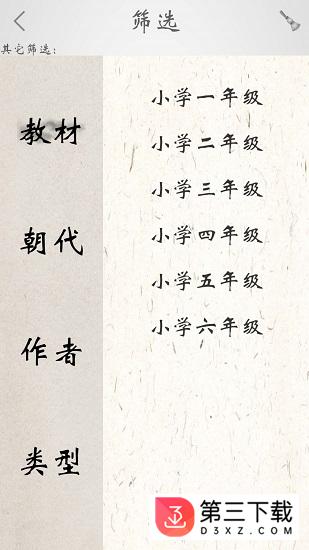 筛选
其它筛选：
教材
朝代
作者
类型
小学一年级
小学二年级
小学三年级
小学四年级
小学五年级
小学六年级
第三下载
D3XZ.COM